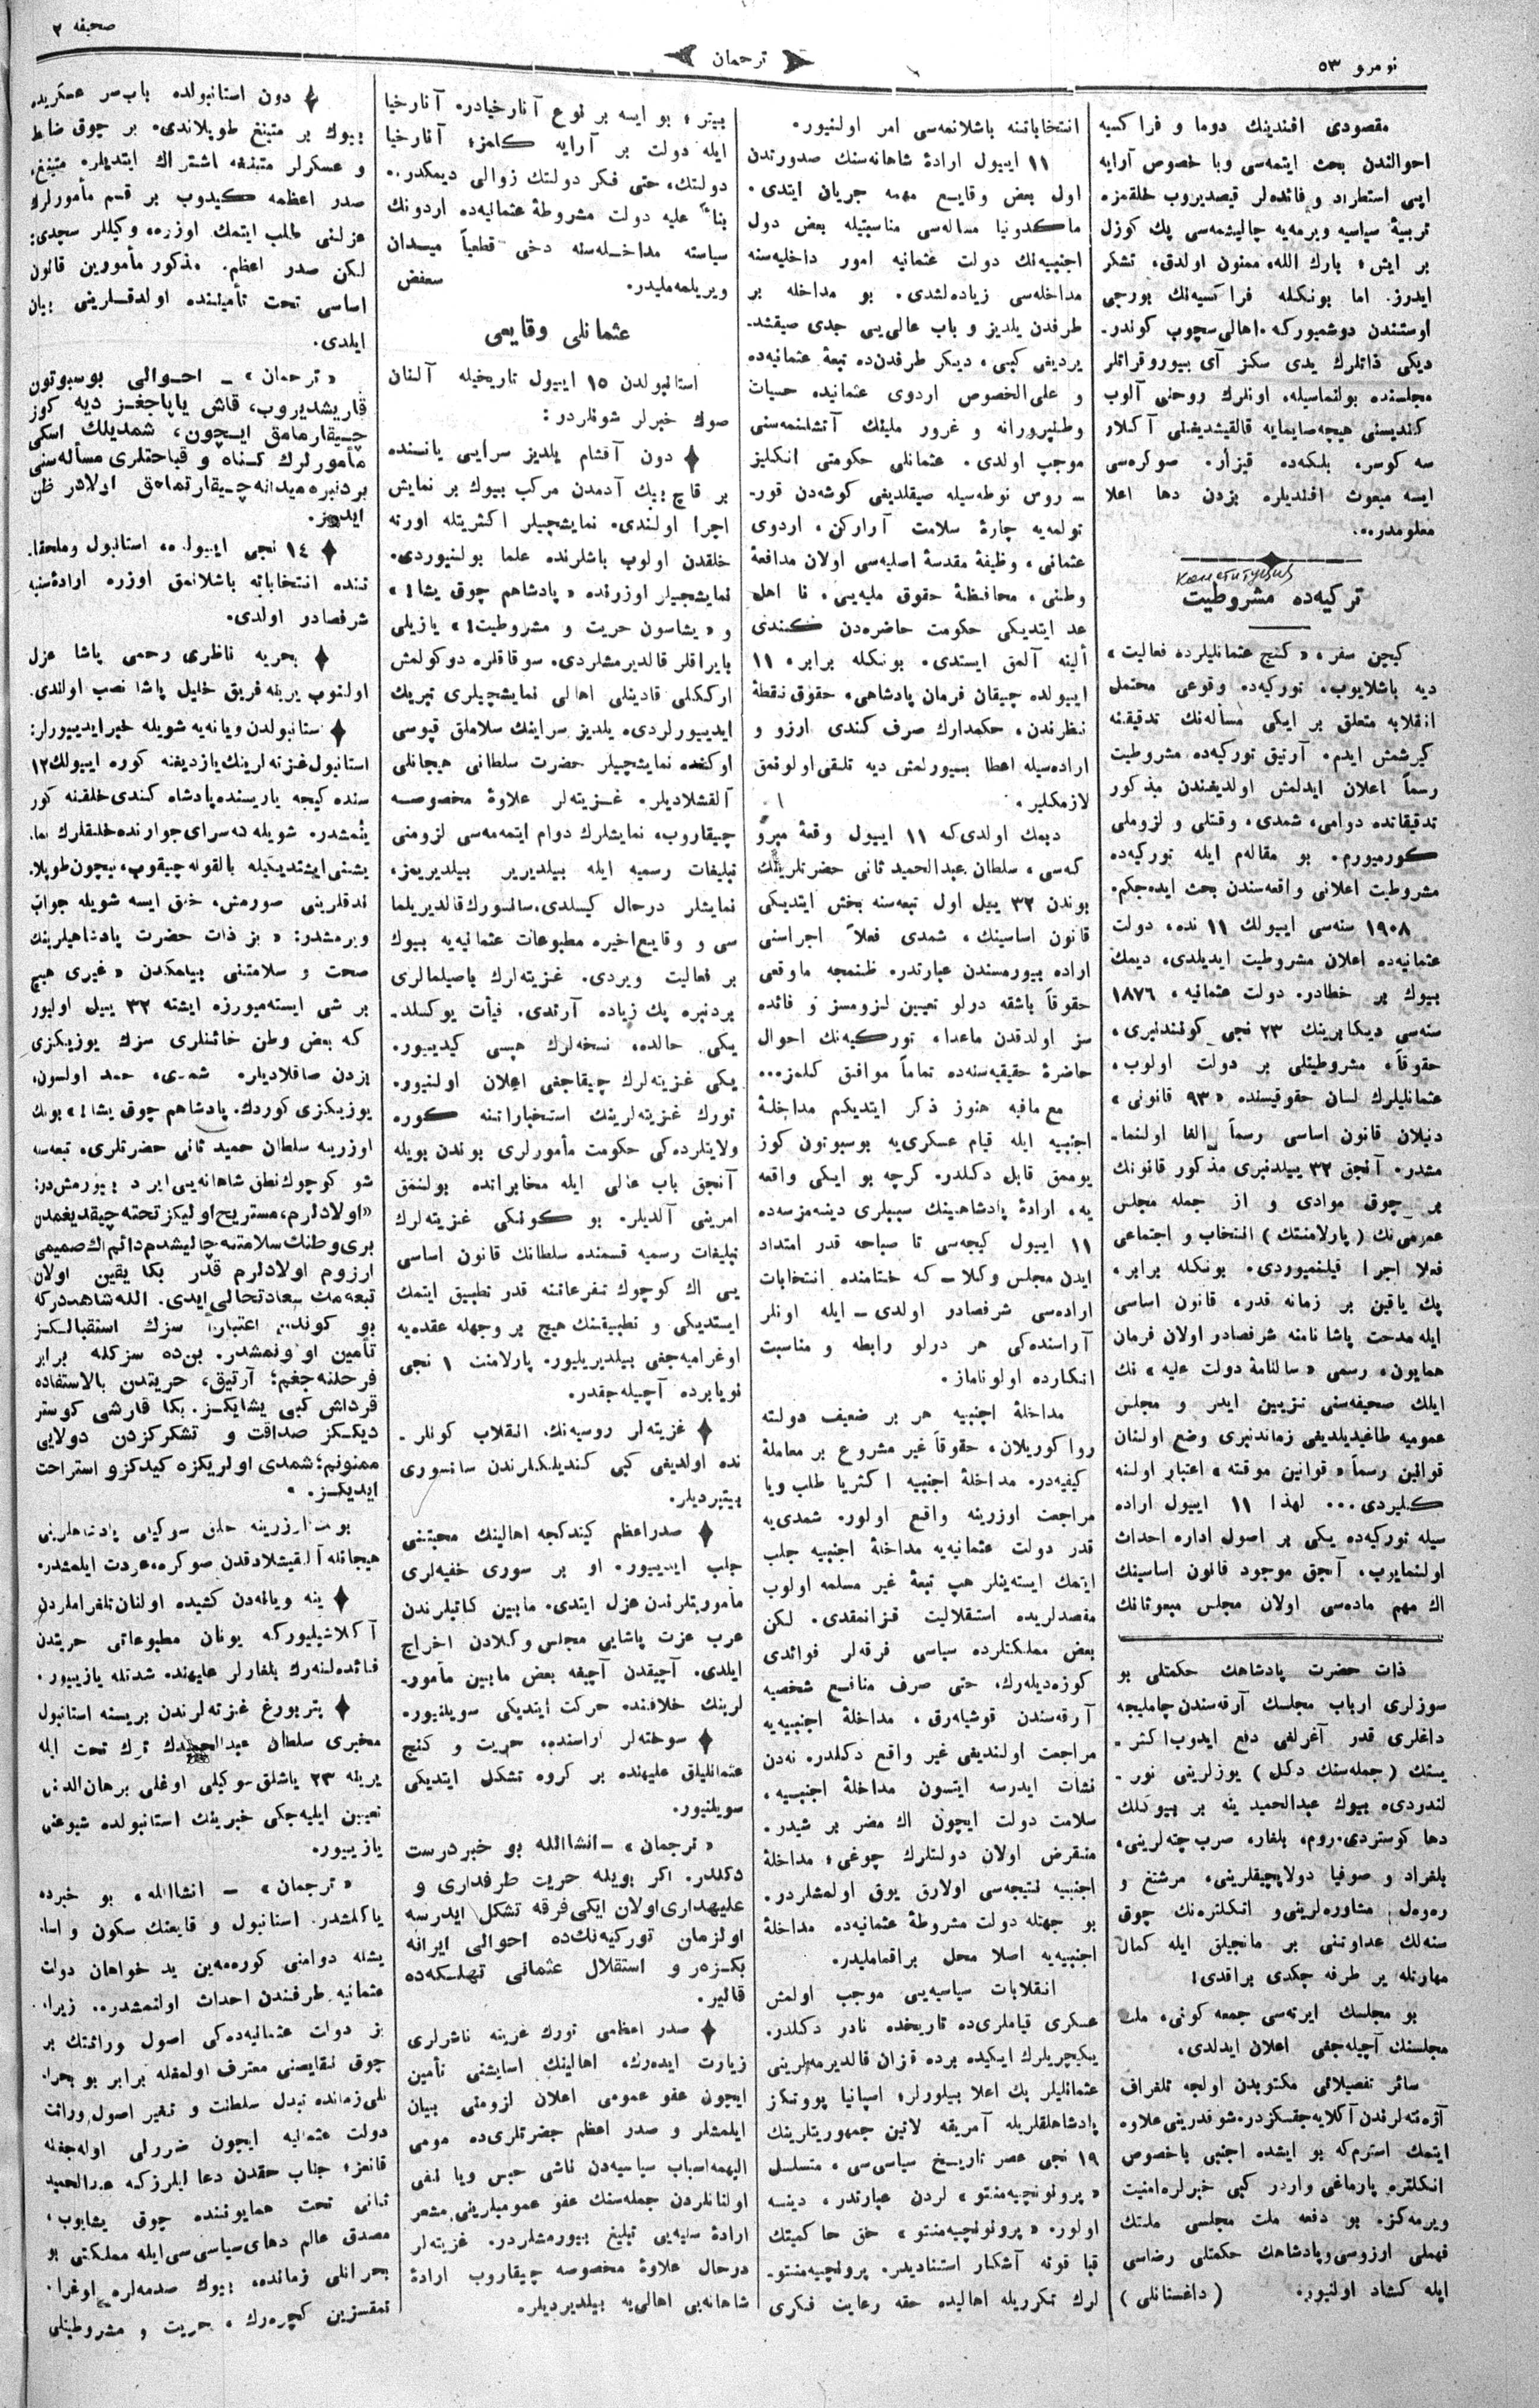 نومرو ٥٣
ترجمان
صحيفه ٢
مقصودى افندينك دوما و فراكسيه
احوالندن بحث ايتمه‌سى وبا خصوص آرايه
اپى استطراد و فائده‌لر قيصديروب خلقمزه
تربيهٔ سياسيه ويرمه‌يه چاليشمه‌سى پك كوزل
بر ايش؛ بارك الله، ممنون اولدق، تشكر
ايدرز. اما بونكله فراكسيه‌نك بورجى
اوستندن دوشميوركه. اهالى سچوب كوندر-
ديكى ذاتلرك يدى سكز آى بيوروقراتلر
مجلسنده بولنماسيله، اونلرك روحنى آلوب
كنديسنى هيچه صايمايه قالقيشديغنى آكلار
سه كوسر، بلكه‌ده قيزار. صوكره‌سى
ايسه مبعوث افنديلره بزدن دها اعلا
معلومدر...
Конституция
تركيه‌ده مشروطيت
كيچن سفر، «كنج عثمانليلرده فعاليت»
ديه باشلايوب، توركيه‌ده وقوعى محتمل
انقلابه متعلق بر ايكى مسأله‌نك تدقيقنه
كيرشمش ايدم. آرتيق توركيه‌ده مشروطيت
رسماً اعلان ايدلمش اولديغندن مذكور
تدقيقاتده دوامى، شمدى، وقتلى و لزوملى
كورميورم. بو مقاله‌م ايله توركيه‌ده
مشروطيت اعلانى واقعه‌سندن بحث ايده‌جكم.
١٩٠٨ سنه‌سى ايبولك ١١ نده، دولت
عثمانيه‌ده اعلان مشروطيت ايديلدى، ديمك
بيوك بر خطادر. دولت عثمانيه، ١٨٧٦
سنه‌سى ديكابرينك ٢٣ نجى كونندنبرى،
حقوقاً، مشروطيتلى بر دولت اولوب،
عثمانليلرك لسان حقوقيسنده «٩٣ قانونى»
دنيلان قانون اساسى رسماً الغا اولنما-
مشدر. آنجق ٣٢ ييلدنبرى مذكور قانونك
بر چوق موادى و از جمله مجلس
عمومى‌نك (پارلامنتك) انتخاب و اجتماعى
فعلا اجرا قيلنميوردى. بونكله برابر،
پك ياقين بر زمانه قدر، قانون اساسى
ايله مدحت پاشا نامنه شرفصادر اولان فرمان
همايون، رسمى «سالنامهٔ دولت عليه» نك
ايلك صحيفه‌سنى تزيين ايدر و مجلس
عموميه طاغيديلديغى زماندنبرى وضع اولنان
قوانين رسماً «قوانين موقته» اعتبار اولنه
كليردى... لهذا ١١ ايبول اراده
سيله توركيه‌ده يكى بر اصول اداره احداث
اولنمايوب، آنجق موجود قانون اساسينك
اك مهم ماده‌سى اولان مجلس مبعوثانك
ذات حضرت پادشاهك حكمتلى بو
سوزلرى ارباب مجلسك آرقه‌سندن چامليجه
داغلرى قدر آغرلغى دفع ايدوب اكثر-
يسنك (جمله‌سنك دكل) يوزلرينى نور-
لندردى. بيوك عبدالحميد ينه بر بيوكلك
دها كوستردى. روم، بلغار، صرب چته‌لرينى،
بلغراد و صوفيا دولاپچيقلرينى، مرشتغ و
ره‌ول مشاوره‌لرينى و انكلتره‌نك چوق
سنه‌لك عداوتنى بر مانجيلق ايله كمال
مهارتله بر طرفه چكدى براقدى!
بو مجلسك ايرته‌سى جمعه كونى، ملت
مجلسنك آچيله‌جغى اعلان ايدلدى.
سائر تفصيلاتى مكتوبدن اولجه تلغراف
آژه‌نته‌لرندن آكلايه‌جقسكزدر. شو قدرينى علاوه
ايتمك استرم‌كه بو ايشده اجنبى باخصوص
انكلتره پارماغى واردر كبى خبرلره امنيت
ويرمه‌كز. بو دفعه ملت مجلسى ملتك
فهملى ارزوسى و پادشاهك حكمتلى رضاسى
ايله كشاد اولنيور. (داغستانلى)
انتخاباتنه باشلانمه‌سى امر اولنيور.
١١ ايبول ارادهٔ شاهانه‌سنك صدورتدن
اول بعض وقايع مهمه جريان ايتدى.
ماكدونيا مسأله‌سى مناسبتيله بعض دول
اجنبيه‌نك دولت عثمانيه امور داخليه‌سنه
مداخله‌سى زياده‌لشدى. بو مداخله بر
طرفدن يلديز و باب عالى‌يى جدى صيقشد-
يرديغى كبى، ديكر طرفدن‌ده تبعهٔ عثمانيه‌ده
و على الخصوص اردوى عثمانيده حسيات
وطنپرورانه و غرور مليتك آتشلنمه‌سنى
موجب اولدى. عثمانلى حكومتى انكليز
ـ روس نوطه‌سيله صيقلديغى كوشه‌دن قور-
تولمه‌يه چارهٔ سلامت آراركن، اردوى
عثمانى، وظيفهٔ مقدسهٔ اصليه‌سى اولان مدافعهٔ
وطنى، محافظهٔ حقوق مليه‌يى، نا اهل
عد ايتديكى حكومت حاضره‌دن كندى
ألينه آلمق ايستدى. بونكله برابر، ١١
ايبولده چيقان فرمان پادشاهى، حقوق نقطهٔ
نظرندن، حكمدارك صرف كندى ارزو و
اراده‌سيله اعطا بيورلمش ديه تلقى اولونمق
لازمكلير.
ديمك اولدى‌كه ١١ ايبول وقعهٔ مبرو
كه‌سى، سلطان عبدالحميد ثانى حضرتلرينك
بوندن ٣٢ ييل اول تبعه‌سنه بخش ايتديكى
قانون اساسينك، شمدى فعلاً اجراسنى
اراده بيورمسندن عبارتدر. ظنمجه ماوقعى
حقوقاً باشقه درلو تعيين لزومسز و فائده
سز اولدقدن ماعدا، توركيه‌نك احوال
حاضرهٔ حقيقيه‌سنه‌ده تماماً موافق كلمز...
مع مافيه هنوز ذكر ايتديكم مداخلهٔ
اجنبيه ايله قيام عسكرى‌يه بوسبوتون كوز
يوممق قابل دكلدر. كرچه بو ايكى واقعه
يه، ارادهٔ پادشاهينك سببلرى دينمزسه‌ده
١١ ايبول كيجه‌سى تا صباحه قدر امتداد
ايدن مجلس وكلا ـ كه ختامنده انتخابات
اراده‌سى شرفصادر اولدى ـ ايله اونلر
آراسنده‌كى هر درلو رابطه و مناسبت
انكارده اولوناماز.
مداخلهٔ اجنبيه هر بر ضعيف دولته
روا كوريلان، حقوقاً غير مشروع بر معاملهٔ
كيفيه‌در. مداخلهٔ اجنبيه اكثريا طلب ويا
مراجعت اوزرينه واقع اولور. شمدى‌يه
قدر دولت عثمانيه‌يه مداخلهٔ اجنبيه جلب
ايتمك ايستينلر هپ تبعهٔ غير مسلمه اولوب
مقصدلريده استقلاليت قزانمقدى. لكن
بعض مملكتلرده سياسى فرقه‌لر فوائدى
كوزه‌ديله‌رك، حتى صرف منافع شخصيه
آرقه‌سندن قوشيه‌رق، مداخلهٔ اجنبيه‌يه
مراجعت اولنديغى غير واقع دكلدر. نه‌دن
نشات ايدرسه ايتسون مداخلهٔ اجنبيه،
سلامت دولت ايچون اك مضر بر شيدر.
منقرض اولان دولتلرك چوغى؛ مداخلهٔ
اجنبيه نتيجه‌سى اولارق يوق اولمشلردر.
بو جهتله دولت مشروطهٔ عثمانيه‌ده مداخلهٔ
اجنبيه‌يه اصلا محل براقماملیدر.
انقلابات سياسيه‌يى موجب اولمش
عسكرى قياملرى‌ده تاريخده نادر دكلدر.
يكيچريلرك ايكيده برده قزان قالديرمه‌لرينى
عثمانليلر پك اعلا بيلورلر؛ اسپانيا پورتكز
پادشاهلقلريله آمريقه لاتين جمهوريتلرينك
١٩ نجى عصر تاريخ سياسى‌سى، متسلسل
«پرونونچيه‌منتو» لردن عبارتدر، دينسه
اولور. «پرونونچيه‌منتو» حق حاكميتك
قبا قوته آشكار استناديدر. پرونچيه‌منتو-
لرك تكرريله اهاليده حقه رعايت فكرى
بيتر؛ بو ايسه بر نوع آنارخيادر. آنارخيا
ايله دولت بر آرايه كلمز؛ آنارخيا
دولتك، حتى فكر دولتك زوالى ديمكدر..
بناءً عليه دولت مشروطهٔ عثمانيه‌ده اردونك
سياسته مداخله‌سنه دخى قطعياً ميدان
ويريلمه‌مليدر. سعفص
عثمانلى وقايعى
استانبولدن ١٥ ايبول تاريخيله آلنان
صوك خبرلر شونلردر:
دون آقشام يلديز سرايى يانسنده
بر قاچ بيك آدمدن مركب بيوك بر نمايش
اجرا اولندى. نمايشچيلر اكثريتله اورته
خلقدن اولوب باشلرنده علما بولنيوردى.
نمايشجيلر اوزرنده «پادشاهم چوق يشا!»
و «يشاسون حريت و مشروطيت!» يازيلى
بايراقلر قالديرمشلردى. سوقاقلره دوكولمش
اركككلى قادينلى اهالى نمايشچيلرى تبريك
ايديورلردى. يلديز سراينك سلاملق قپوسى
اوكنده نمايشچيلر حضرت سلطانى هيجانلى
آلقشلاديلر. غزيته‌لر علاوهٔ مخصوصه
چيقاروب، نمايشلرك دوام ايتمه‌مه‌سى لزومنى
تبليغات رسميه ايله بيلديرير بيلديريمز.
نمايشلر درحال كيسلدى. سانسورك قالديريلما
سى و وقايع اخيره مطبوعات عثمانيه‌يه بيوك
بر فعاليت ويردى. غزيته‌لرك باصيلمالرى
بردنبره پك زياده آرتدى. فيأت يوكسلد-
يكى حالده، نسخه‌لرك هپسى كيدييور.
يكى غزيته‌لرك چيقاجغى اعلان اولنيور.
تورك غزيته‌لرينك استخباراتنه كوره
ولايتلرده‌كى حكومت مأمورلرى بوندن بويله
آنجق باب عالى ايله مخابراتده بولنمق
امرينى آلديلر. بو كونكى غزيته‌لرك
تبليغات رسميه قسمنده سلطانك قانون اساسى
يى اك كوچوك تفرعاتنه قدر تطبيق ايتمك
ايستديكى و تطبيقنك هيچ بر وجهله عقده‌يه
اوغراميه‌جغى بيلديريليور. پارلامنت ١ نجى
نويابرده آچيله‌جقدر.
غزيته‌لر روسيه‌نك انقلاب كونلر-
نده اولديغى كبى كنديلكلرندن سانسورى
بيتيرديلر.
صدراعظم كيتدكجه اهالينك محبتنى
جلب ايدييور. او بر سورى خفيه‌لرى
مأموريتلرندن عزل ايتدى. مابين كاتبلرندن
عرب عزت پاشايى مجلس وكلادن اخراج
ايلدى. آچيقدن آچيغه بعض مابين مأمور-
لرينك خلافنده حركت ايتديكى سويلنيور.
سوخته‌لر آراسنده، حريت و كنج
عثمانليلق عليهنده بر كروه تشكل ايتديكى
سويلنيور.
«ترجمان» ـ انشاالله بو خبر درست
دكلدر. اكر بويله حريت طرفدارى و
عليهدارى اولان ايكى فرقه تشكل ايدرسه
اولزمان توركيه‌نك‌ده احوالى ايرانه
بكزر و استقلال عثمانى تهلكه‌ده
قالير.
صدر اعظمى تورك غزيته ناشرلرى
زيارت ايده‌رك، اهالينك اسايشنى تأمين
ايچون عفو عمومى اعلان لزومنى بيان
ايلمشلر و صدر اعظم حضرتلرى‌ده مومى
اليهمه اسباب سياسيه‌دن ناشى حبس ويا نفى
اولنانلردن جمله‌سنك عفو عموميلرينى مشعر
ارادهٔ سنيه‌يى تبليغ بيورمشلردر. غزيته‌لر
درحال علاوهٔ مخصوصه چيقاروب ارادهٔ
شاهانه‌يى اهالى‌يه بيلديرديلر.
دون استانبولده باب سر عسكريده
بيوك بر متينغ طوپلاندى. بر چوق ضابط
و عسكرلر متينغه اشتراك ايتديلر. متينغ،
صدر اعظمه كيدوب بر قسم مأمورلرك
عزلنى طلب ايتمك اوزره، وكيللر سچدى؛
لكن صدر اعظم. مذكور مأمورين قانون
اساسى تحت تأمیننده اولدقلرينى بيان
ايلدى.
«ترجمان» ـ احوالى بوسبوتون
قاريشديروب، قاش ياپاجغز ديه كوز
چيقارمامق ايچون، شمديلك اسكى
مأمورلرك كناه و قباحتلرى مسأله‌سنى
بردنبره ميدانه چيقارتمامق اولادر ظن
ايدرز.
١٤ نجى ايبولده، استانبول وملحقا-
تنده انتخاباته باشلانمق اوزره ارادهٔ سنيه
شرفصادر اولدى.
بحريه ناظرى رحمى پاشا عزل
اولنوب يرينه فريق خليل پاشا نصب اولندى.
ستانبولدن ويانه‌يه شويله خبر ايديورلر:
استانبول غزته‌لرينك يازديغنه كوره ايبولك ١٢
سنده كيجه ياريسنده پادشاه كندى خلقنه كور
ينمشدر. شويله‌ ده سراى جوارنده خلقلرك نما-
يشنى ايشتديكيله بالقونه چيقوب، نيچون طوپلا-
ندقلرينى صورمش. خلق ايسه شويله جواب
ويرمشدر: «بز ذات حضرت پادشاهيلرينك
صحت و سلامتنى بيلمكدن غيرى هيچ
بر شى ايسته‌ميورزه ايشته ٣٢ ييل اوليور
كه بعض وطن خائنلرى سزك يوزيكزى
بزدن صاقلاديلر. شمدى، حمد اولسون،
يوزيكزى كوردك. پادشاهم چوق يشا!» بونك
اوزرينه سلطان حميد ثانى حضرتلرى، تبعه‌سنه
شو كوچوك نطق شاهانه‌يى ايراد بيورمش‌در:
«اولادلرم، مستريح اوليكز تخته چيقديغمدن
برى وطنك سلامتنه چاليشدم دائم اك صميمى
ارزوم اولادلرم قدر بكا يقين اولان
تبعه‌مك سعادتحالى ايدى. الله شاهددركه
بو كوندن اعتباراً سزك استقبالكز
تأمين اولونمشدر. بن‌ده سزكله برابر
فرحلنه‌جغم؛ آرتيق، حريتدن بالاستفاده
قرداش كبى يشايكز. بكا قارشى كوستر
ديككز صداقت و تشكركزدن دولايى
ممنونم؛ شمدى اولريكزه كيدكز و استراحت
ايديكز.»
بونك اوزرينه خلق سوكيلى پادشاهلرينى
هيجانله آلقيشلادقدن صوكره، عودت ايلمشدر.
ينه ويانه‌دن كشيده اولنان تلغرافلردن
آكلاشيليوركه يونان مطبوعاتى حريتدن
فائده‌لنه‌رك بلغارلر عليهنده شدتله يازييور.
پتربورغ غزته‌لرندن بريسنه استانبول
مخبرى سلطان عبدالحميدك ترك تحت ايله
يرينه ٢٣ ياشلق سوكيلى اوغلى برهان الدينى
تعيين ايليه‌جكى خبرينك استانبولده شيوعنى
يازييور.
«ترجمان» ـ انشاالله، بو خبرده
ياكلشدر. استانبول و قايعنك سكون و اسا-
يشله دوامنى كوره‌مه‌ين بد خواهان دولت
عثمانيه طرفندن احداث اولنمشدر.. زيرا،
بز دولت عثمانيه‌ده‌كى اصول وراثتك بر
چوق نقايصنى معترف اولمقله برابر بو بحرا-
نلى زمانده تبدل سلطنت و تغير اصول وراثت
دولت عثمانيه ايچون ضررلى اوله‌جغنه
قانعز؛ جناب حقدن دعا ايلرزكه عبدالحميد
ثانى تحت همايوننده چوق يشايوب،
مصدق عالم دهاى سياسى‌سى ايله مملكتى بو
بحرانلى زمانده، بيوك صدمه‌لره اوغرا-
تمقسزين كچره‌رك، حريت و مشروطيتلى